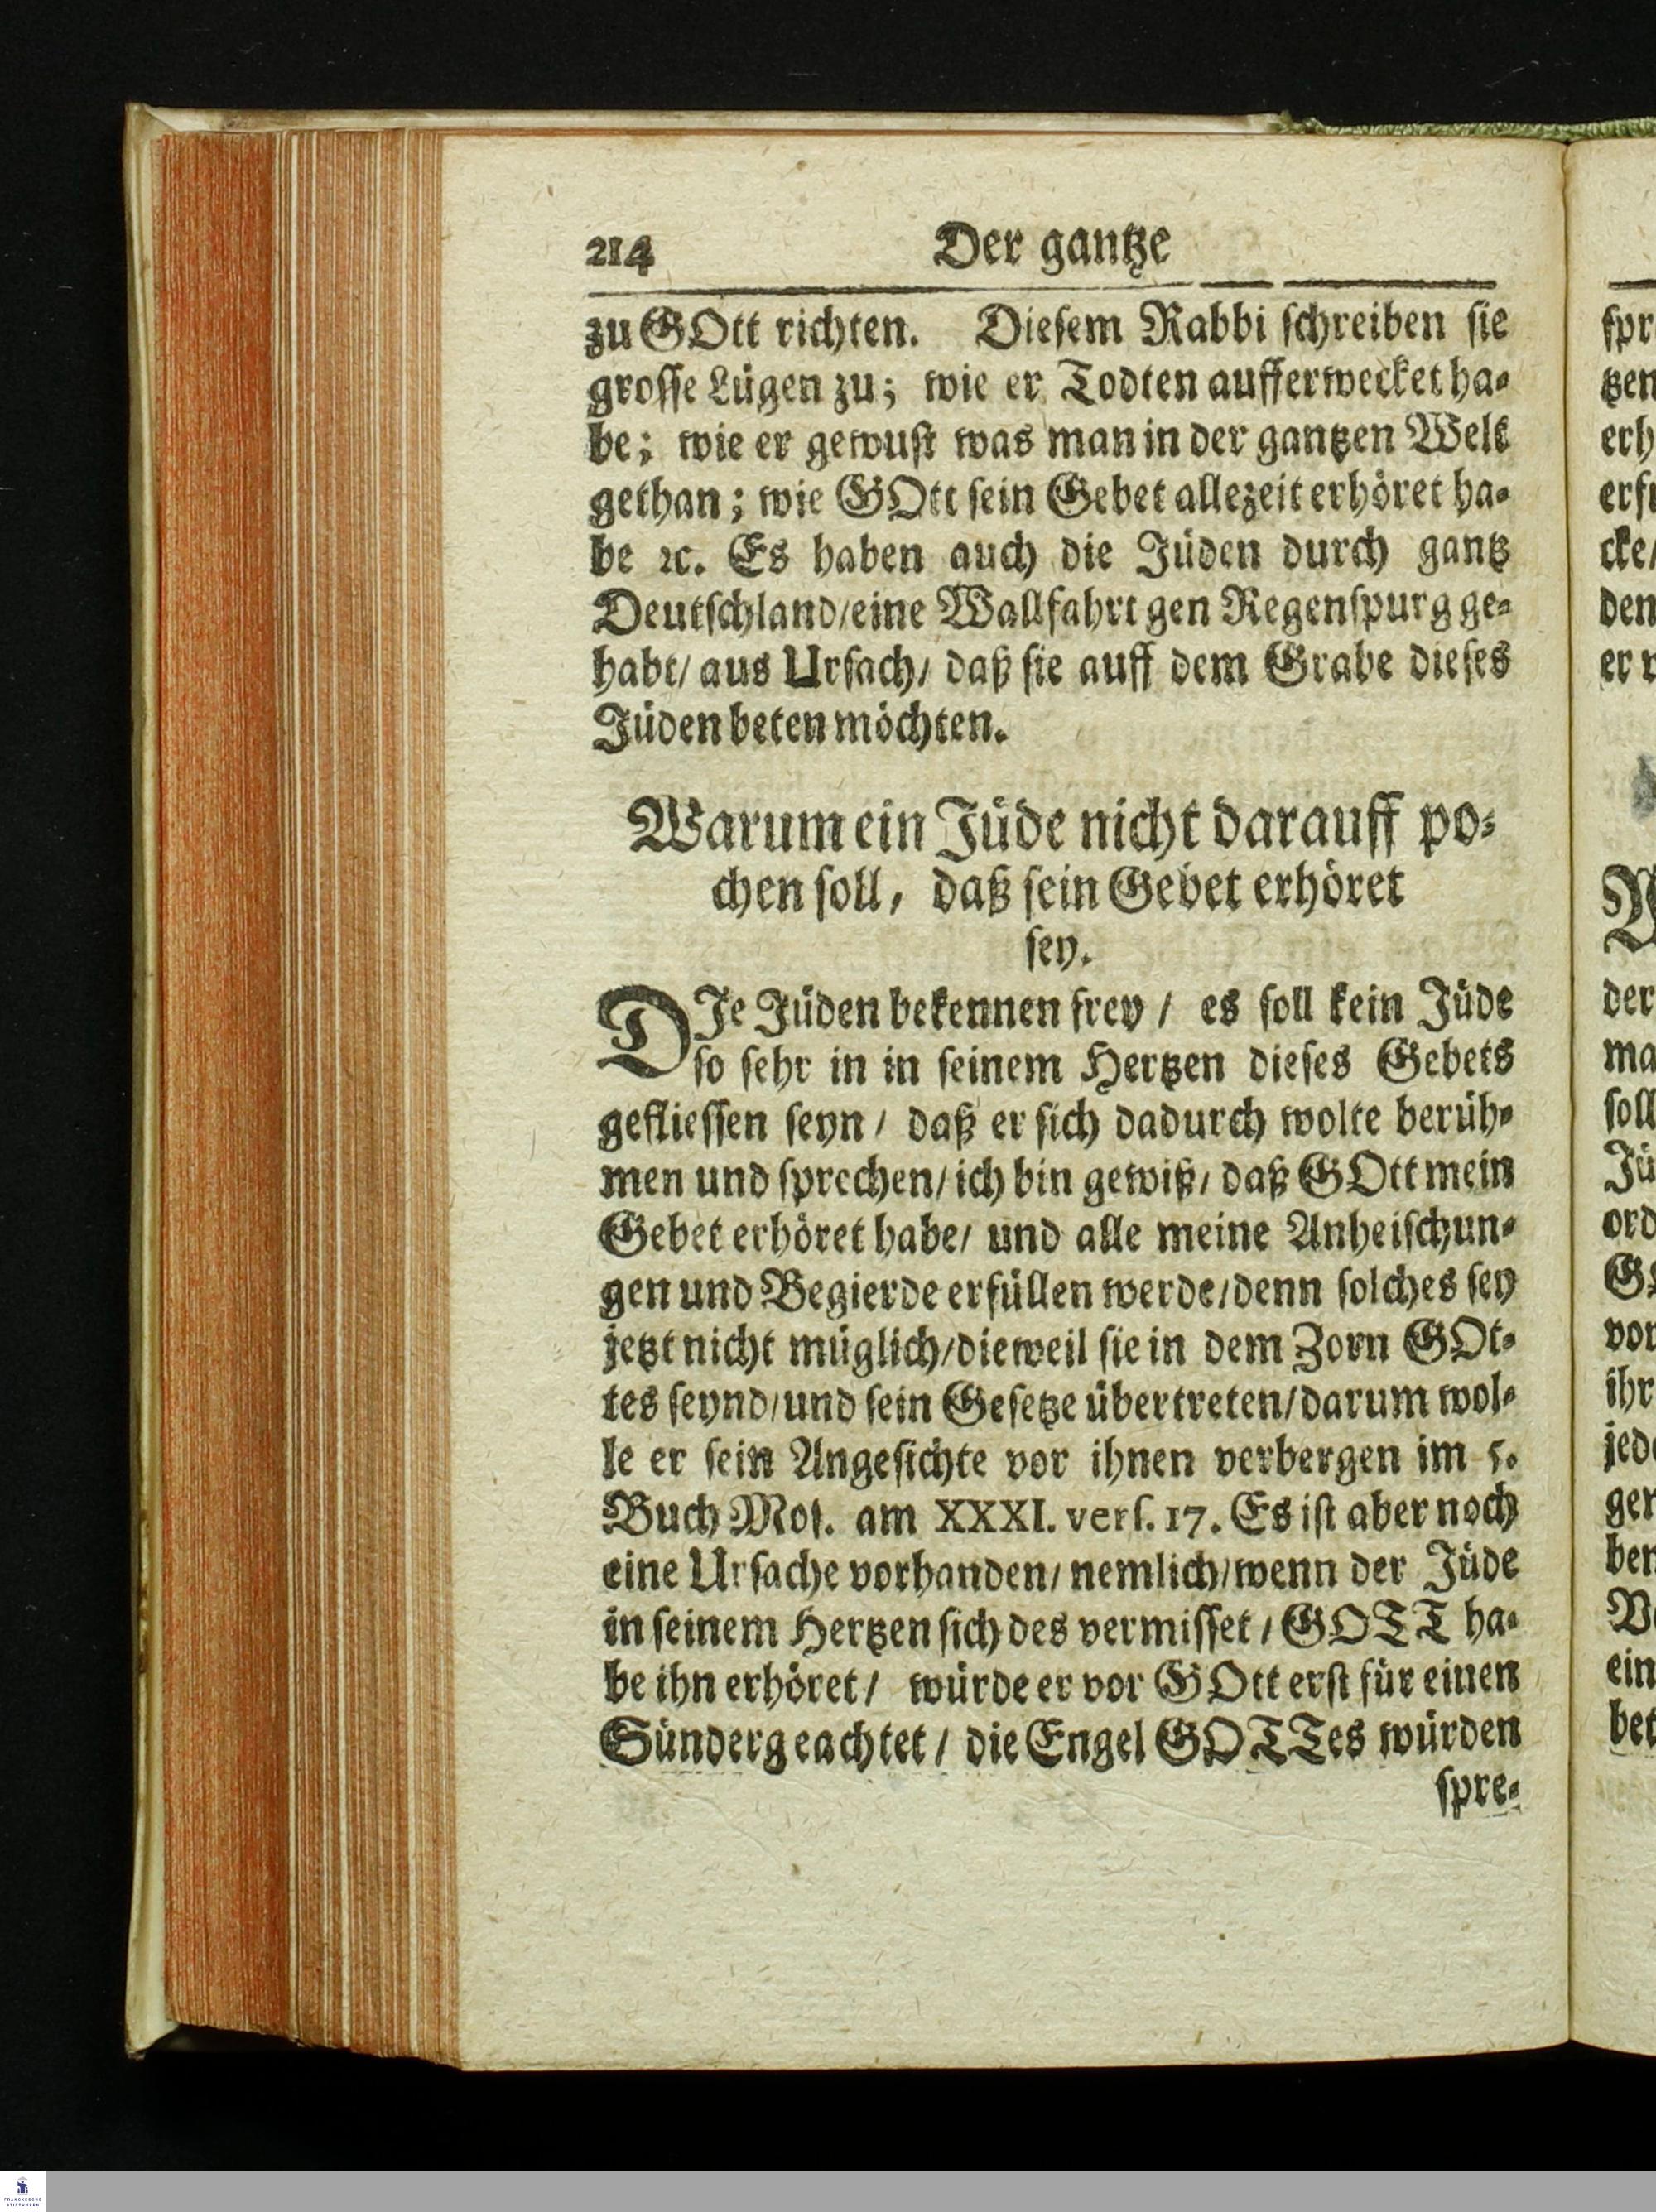 214 Der gantze
zu GOtt richten. Diesem Rabbi schreiben sie
grosse Lügen zu; wie er Todten aufferwecket ha-
be; wie er gewust was man in der gantzen Welt
gethan; wie GOtt sein Gebet allezeit erhöret ha-
be ꝛc. Es haben auch die Jüden durch gantz
Deutschland/eine Wallfahrt gen Regenspurg ge-
habt/ aus Ursach/ daß sie auff dem Grabe dieses
Jüden beten möchten.
Warum ein Jüde nicht darauff po-
chen soll, daß sein Gebet erhöret
sey.
DJe Jüden bekennen frey / es soll kein Jüde
so sehr in in seinem Hertzen dieses Gebets
gefliessen seyn / daß er sich dadurch wolte berüh-
men und sprechen/ ich bin gewiß/ daß GOtt mein
Gebet erhöret habe/ und alle meine Anheischun-
gen und Begierde erfüllen werde/denn solches sey
jetzt nicht müglich/dieweil sie in dem Zorn GOt-
tes seynd/und sein Gesetze übertreten/darum wol-
le er sein Angesichte vor ihnen verbergen im 5.
Buch Mos. am XXXI. vers. 17. Es ist aber noch
eine Ursache vorhanden/ nemlich/wenn der Jüde
in seinem Hertzen sich des vermisset / GOTT ha-
be ihn erhöret / würde er vor GOtt erst für einen
Sünder geachtet / die Engel GOTTes würden
spre-
spr
tzen
erh
cke/
den
der
ma
soll
Jü
ord
vor
ihr
jede
ger
ben
ein
bet
FRANCKESCHE
STIFTUNGEN